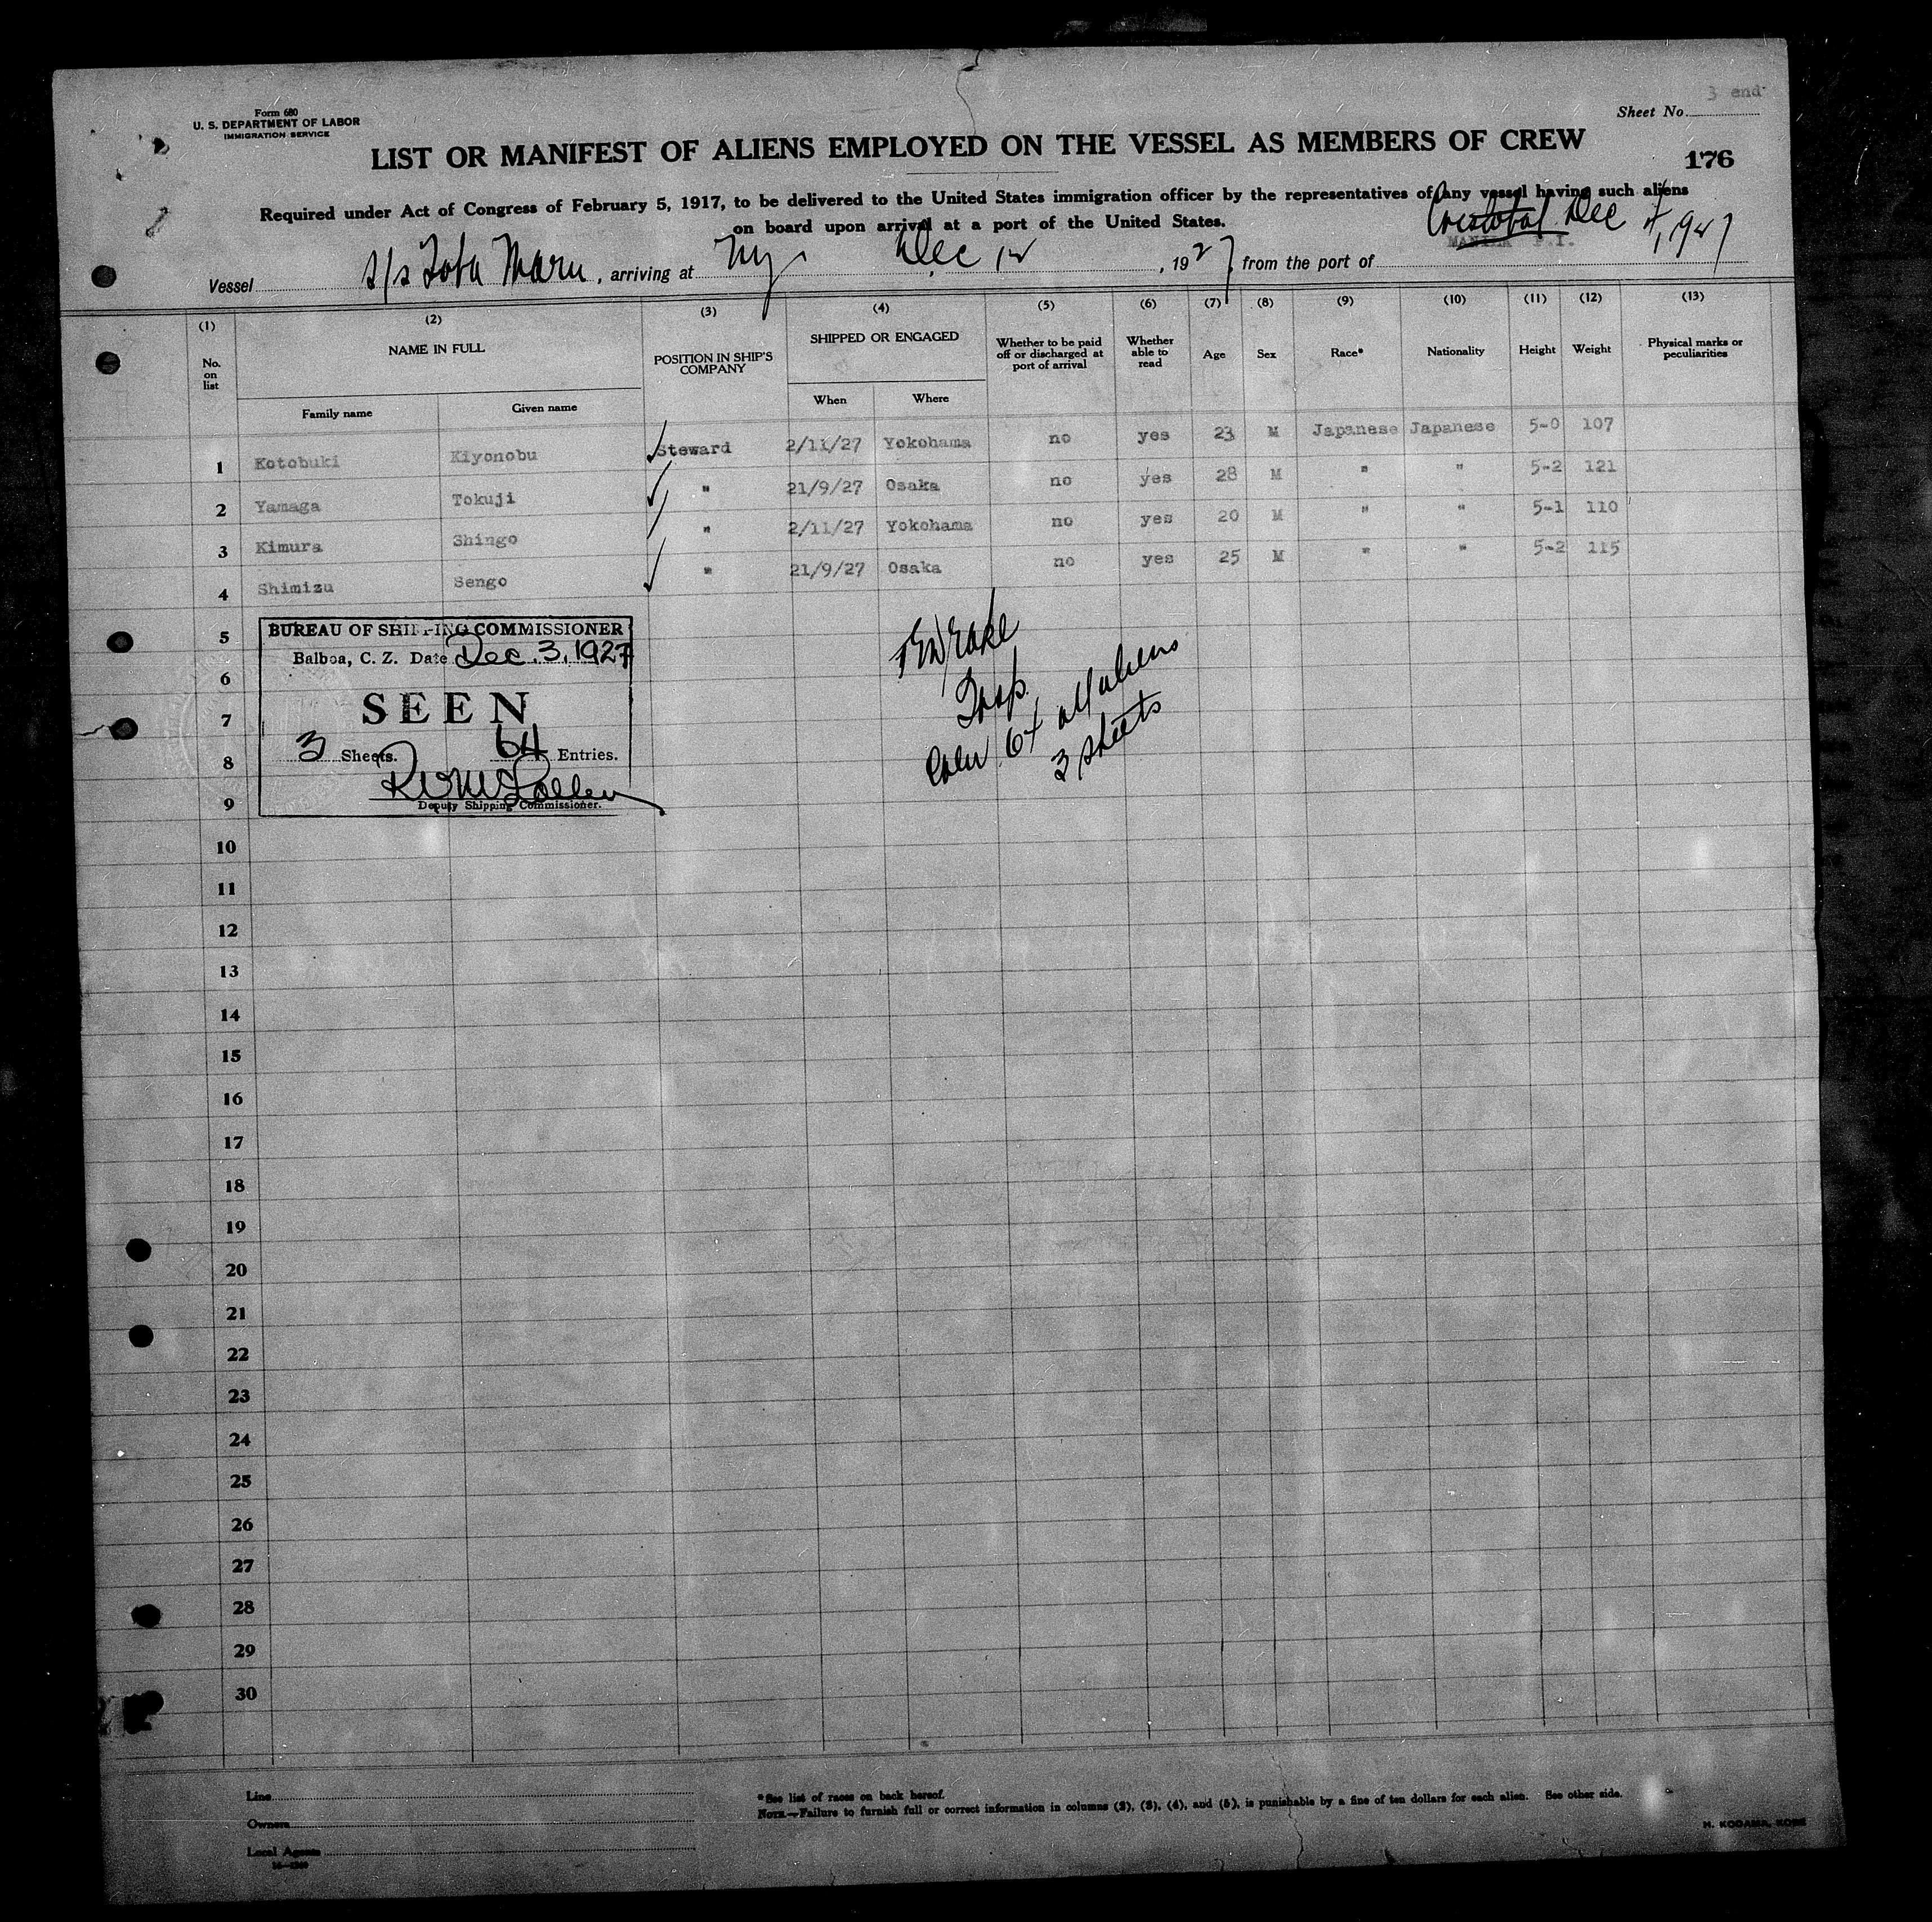 3 end
Sheet No.
Form 680
U. S. DEPARTMENT OF LABOR
IMMIGRATION SERVICE
LIST OR MANIFEST OF ALIENS EMPLOYED ON THE VESSEL AS MEMBERS OF CREW
176
Required under Act of Congress of February 5, 1917, to be delivered to the United States immigration officer by the representatives of any vessel having such aliens
on board upon arrival at a port of the United States.
Cristobal Dec 4, 1927
MANILA P.I.
Vessel S/s Toba Maru, arriving at Ny. Dec 12, 1927, from the port of
(1) (2) (3) (4) (5) (6) (7) (8) (9) (10) (11) (12) (13)
No. on list NAME IN FULL POSITION IN SHIP'S COMPANY SHIPPED OR ENGAGED Whether to be paid off or discharged at port of arrival Whether able to read Age Sex Race* Nationality Height Weight Physical marks or peculiarities
Family name Given name When Where
1 Kotobuki Kiyonobu Steward 2/11/27 Yokohama no yes 23 M Japanese Japanese 5-0 107
2 Yamaga Tokuji " 21/9/27 Osaka no yes 28 M " " 5-2 121
3 Kimura Shingo " 2/11/27 Yokohama no yes 20 M " " 5-1 110
4 Shimizu Sengo " 21/9/27 Osaka no yes 25 M " " 5-2 115
5
6
7
8
9
BUREAU OF SHIPPING COMMISSIONER
Balboa, C. Z. Date Dec. 3, 1927
SEEN
3 Sheets. 64 Entries.
Deputy Shipping Commissioner.
Insp.
64 all aliens
3 sheets
10
11
12
13
14
15
16
17
18
19
20
21
22
23
24
25
26
27
28
29
30
Line
Owners
Local Agents
*See list of races on back hereof.
NOTE.—Failure to furnish full or correct information in columns (2), (3), (4), and (5), is punishable by a fine of ten dollars for each alien. See other side.
H. KODAMA, KOBE